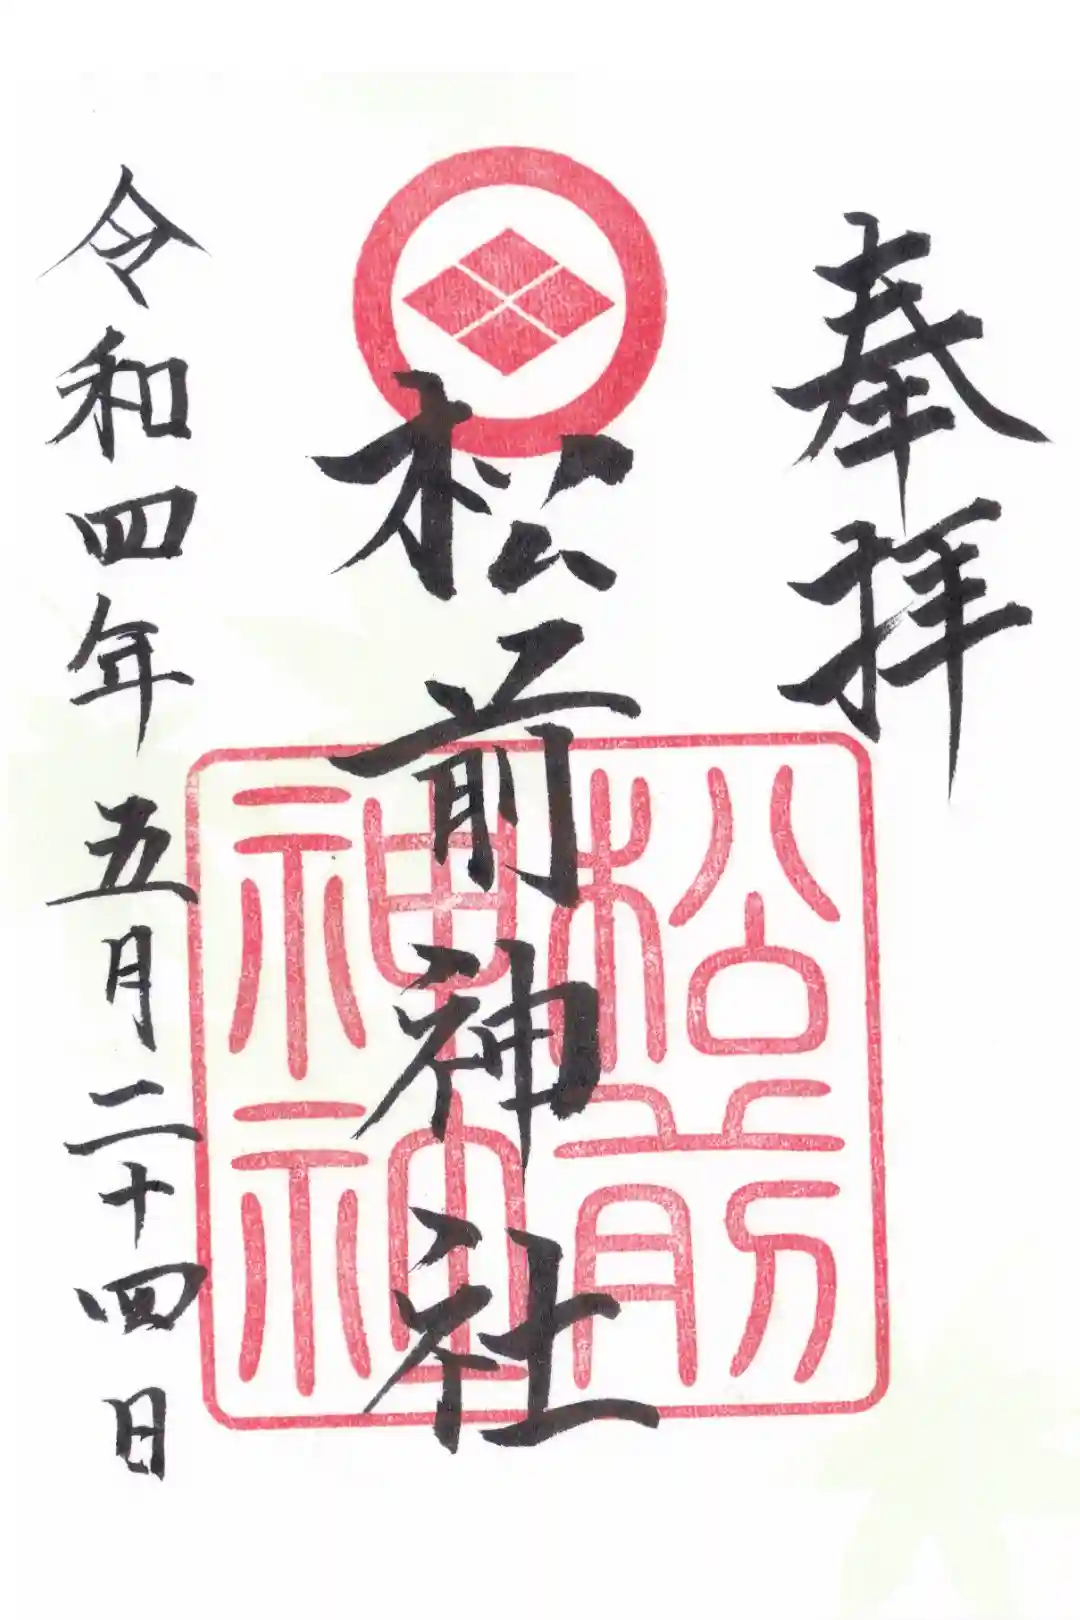 奉拝
松前神社
松前
神社
令和四年五月二十四日